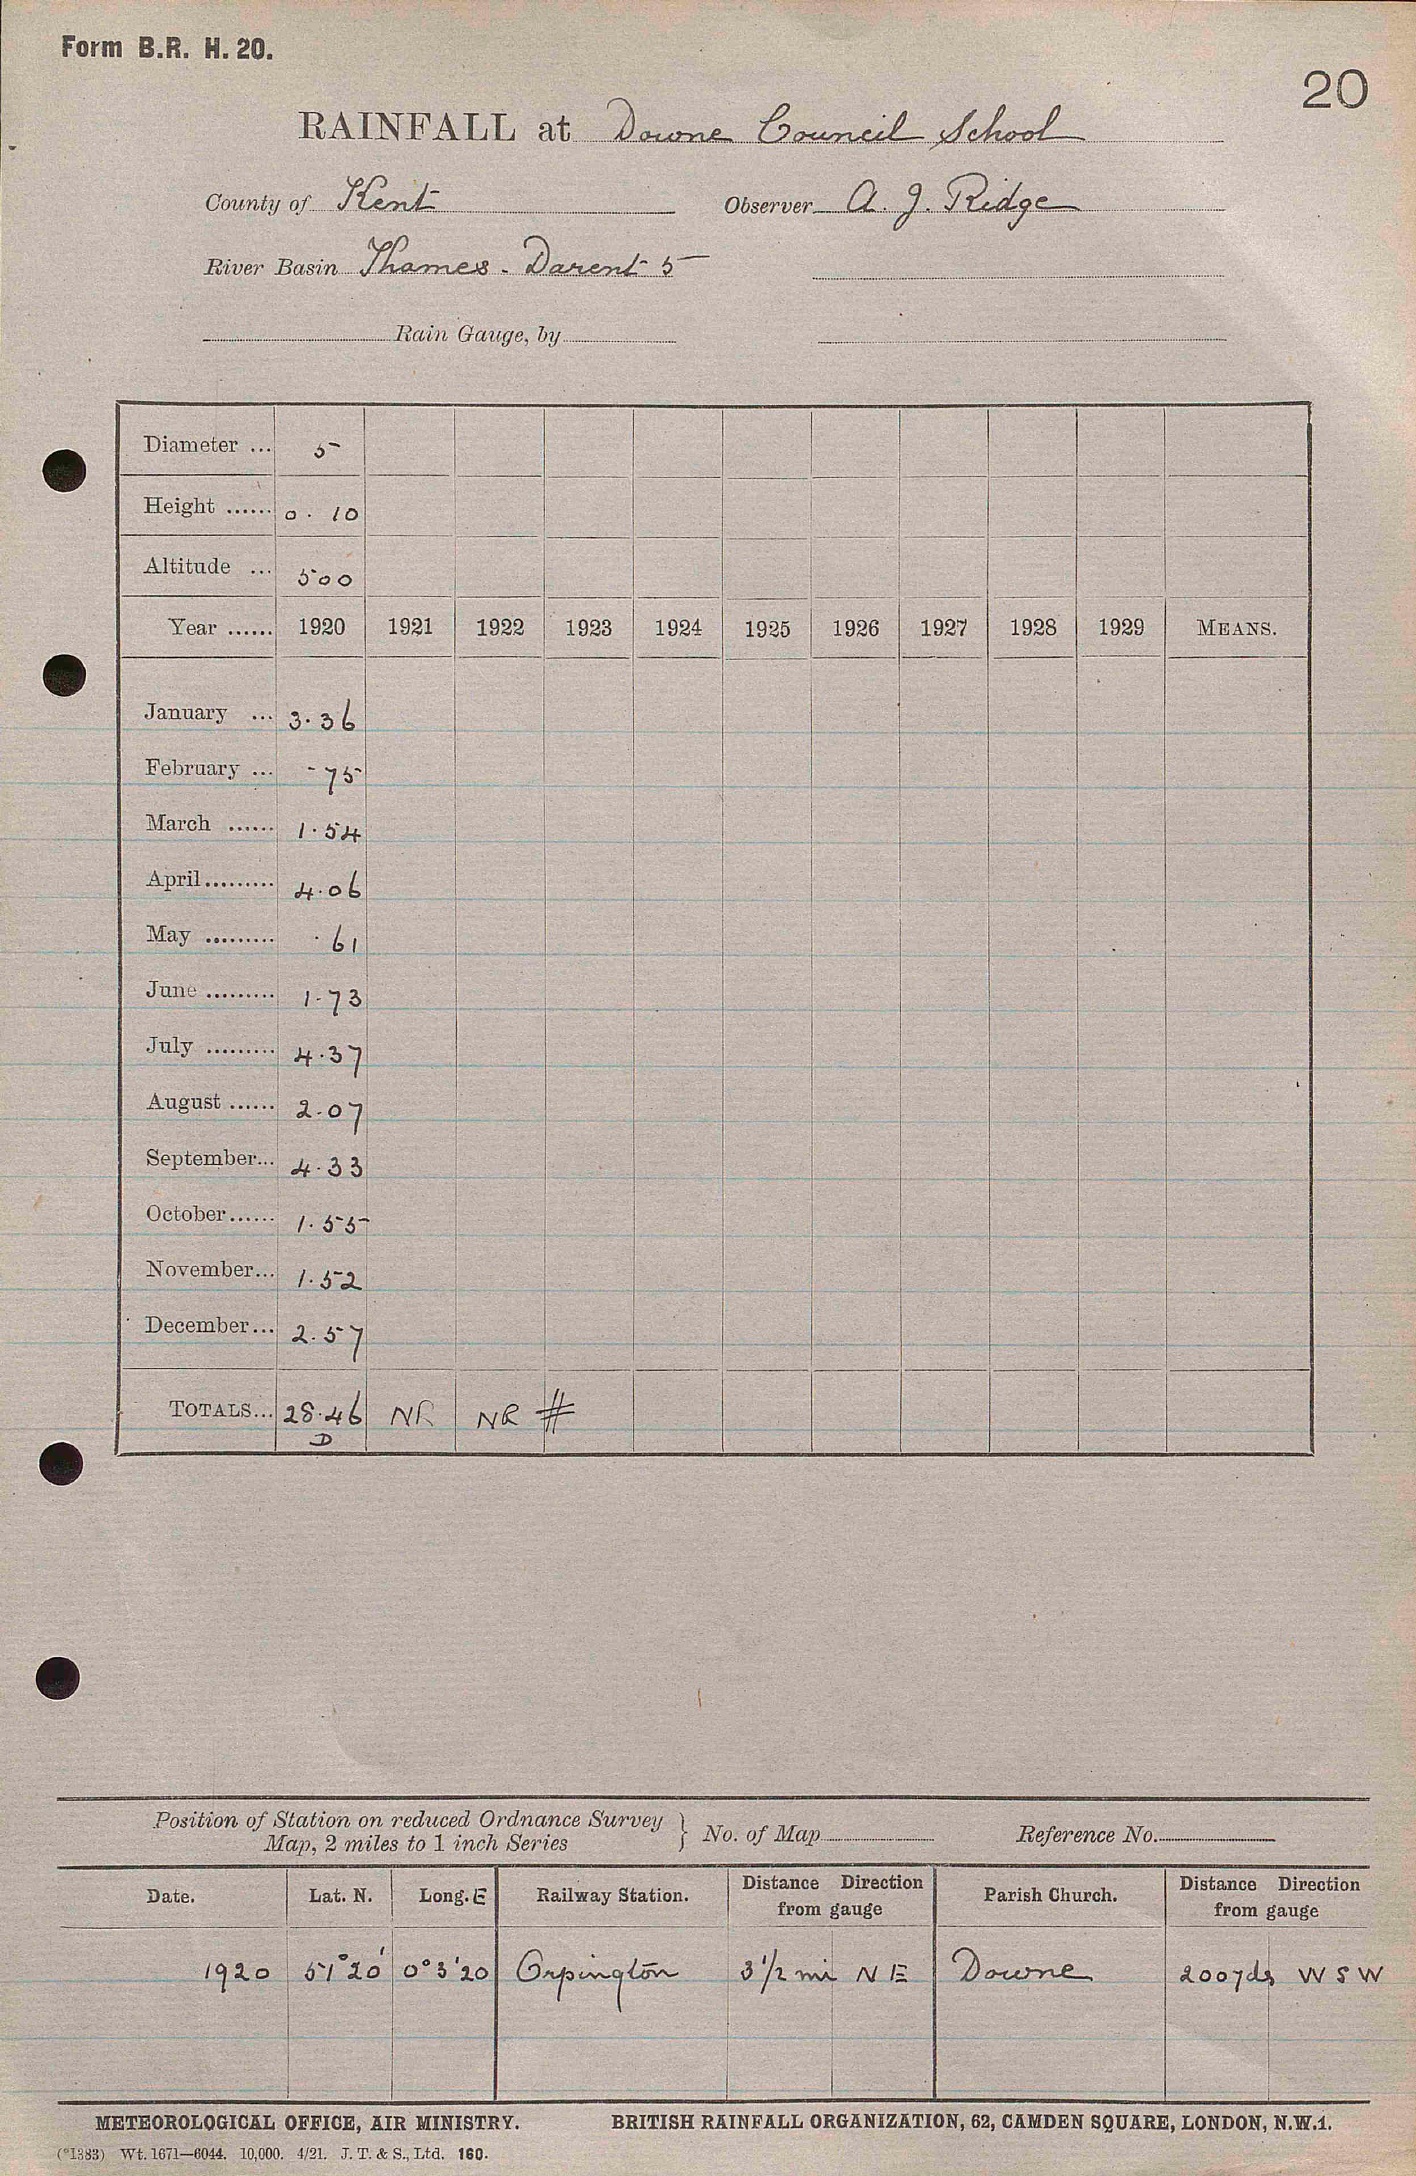 Form B.R. H. 20.
20
RAINFALL at Downe Council School
County of Kent Observer A. J. Ridge
River Basin Thames - Darent 5
Rain Gauge, by
Diameter ... 5
Height ...... 0 . 10
Altitude ... 500
Year ...... 1920 1921 1922 1923 1924 1925 1926 1927 1928 1929 MEANS.
January ... 3.36
February ... .75
March ...... 1.54
April ......... 4.06
May ......... .61
June ......... 1.73
July ......... 4.37
August ...... 2.07
September... 4.33
October...... 1.55
November... 1.52
December... 2.57
TOTALS... 28.46 NR NR #
D
Position of Station on reduced Ordnance Survey
Map, 2 miles to 1 inch Series } No. of Map Reference No.
Date. Lat. N. Long. E Railway Station. Distance Direction from gauge Parish Church. Distance Direction from gauge
1920 51°20' 0°3'20 Orpington 3 1/2 mi N E Downe 200yds W S W
METEOROLOGICAL OFFICE, AIR MINISTRY. BRITISH RAINFALL ORGANIZATION, 62, CAMDEN SQUARE, LONDON, N.W.1.
(*1383) Wt. 1671—6044. 10,000. 4/21. J. T. & S., Ltd. 160.